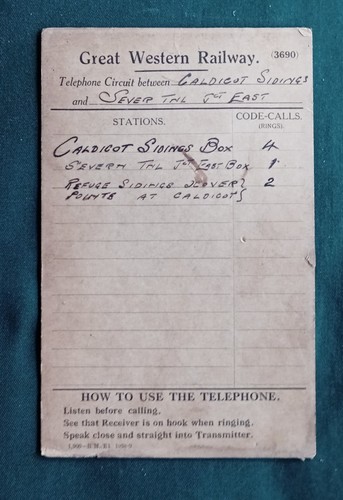 Great Western Railway. (3690)
Telephone Circuit between CALDICOT SIDINGS
and SEVER TNL JCT EAST
STATIONS. CODE-CALLS.
(RINGS).
CALDICOT SIDINGS BOX 4
SEVERN TNL JCT EAST BOX 1
REFUGE SIDINGS } 2
POINTS AT CALDICOT }
HOW TO USE THE TELEPHONE.
Listen before calling.
See that Receiver is on hook when ringing.
Speak close and straight into Transmitter.